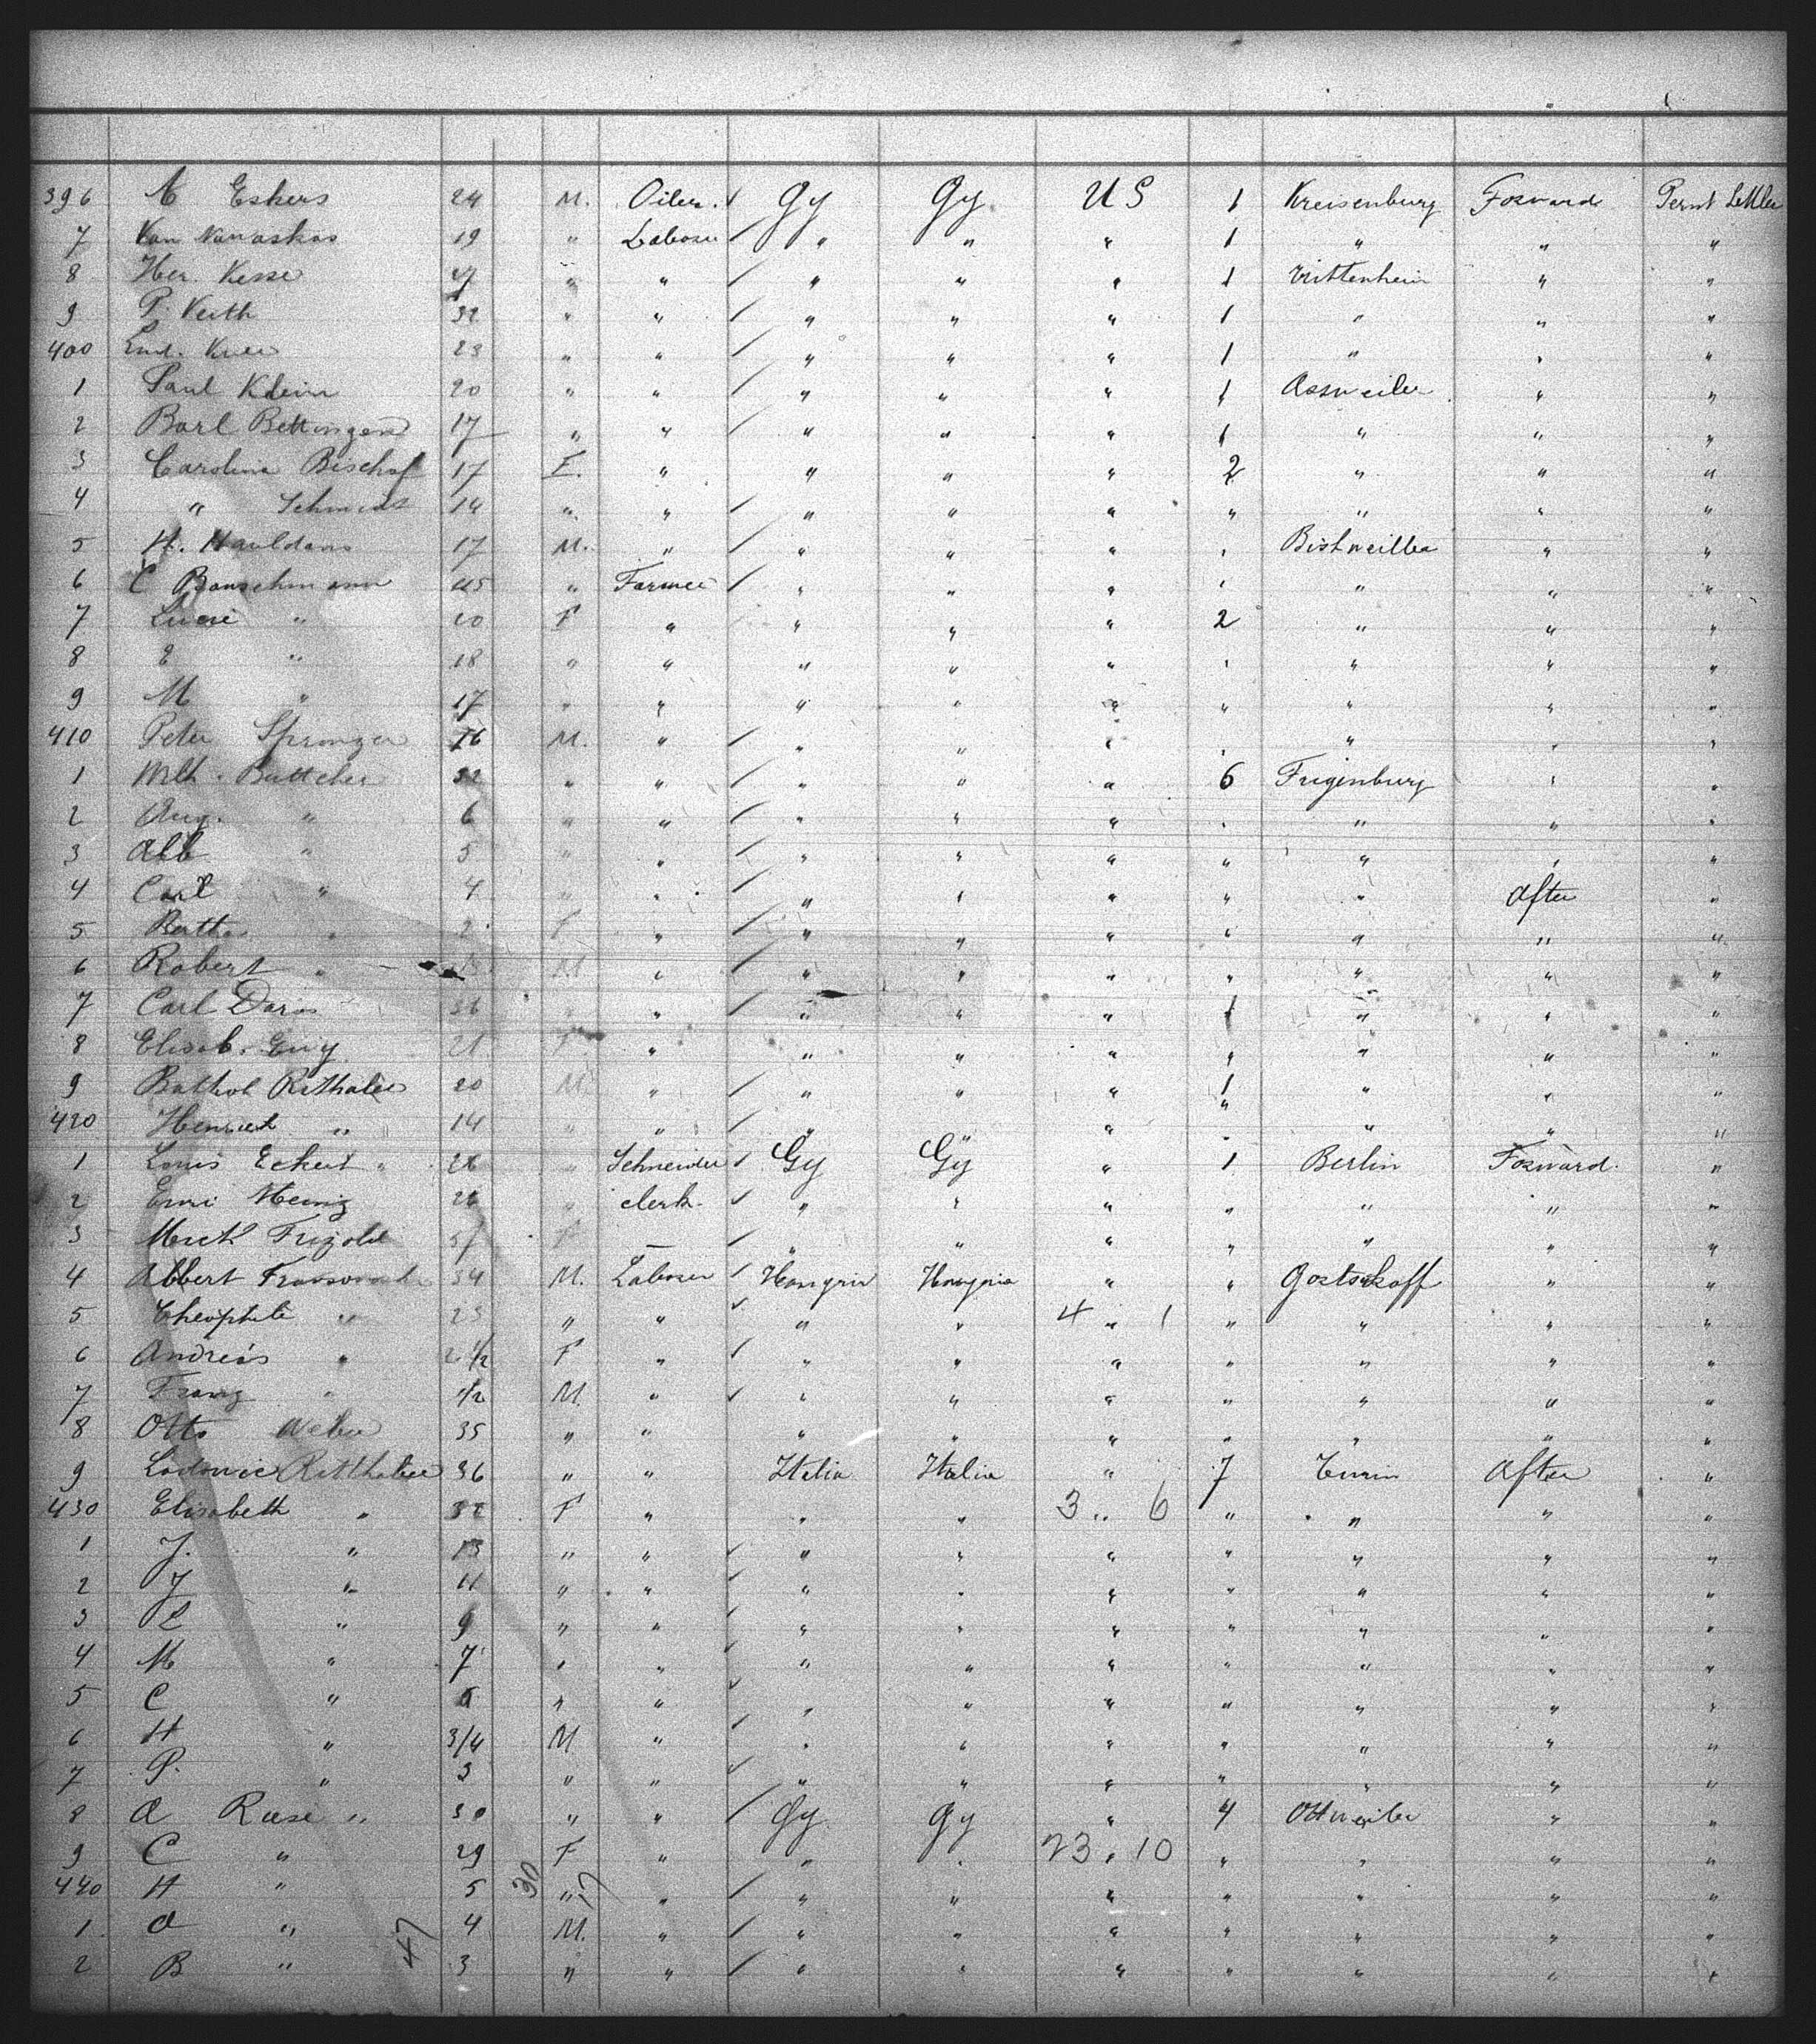 396 A Eskers 24 M. Oiler. Gy Gy U S 1 Kreisenburg Forward Pernt Lettler
7 Van Nanaskas 19 " Laborer " " " 1 " " "
8 Her. Kesse " " " " " 1 Trittenheim " "
9 P. Keith 32 " " " " " 1 " " "
400 23 " " " " " 1 " " "
1 Paul Klein 20 " " " " " 1 Assweiler " "
2 Barl Bettingen 17 " " " " " 1 " " "
3 Carolina Bischof 17 F. " " " " 2 " " "
4 " Schmidt 14 " " " " " " " " "
5 H. Hauldans 17 M. " " " " " Bishweiller " "
6 C Banschmann 45 " Farmer " " " " " " "
7 " 20 F " " " " 2 " " "
8 E " 18 " " " " " " " " "
9 M " 17 " " " " " " " " "
410 Peter Sprenger 16 M. " " " " " " " "
1 Mth. Buttcher 32 " " " " " 6 Frigenburg " "
2 Aug. " 6 " " " " " " " " "
3 Alb " 5 " " " " " " " " "
4 Carl " 4 " " " " " " " After "
5 Bertha " 2 F " " " " " " " "
6 Robert " M " " " " " " " "
7 Carl Daris 36 " " " " " 1 " " "
8 Elisab. Euy 21 F " " " " " " " "
9 Bathol Rithaler 20 M. " " " " 1 " " "
420 " 14 " " " " " " " " "
1 Louis Eckert " 28 " Schneider Gy Gy " 1 Berlin Forward. "
2 Emi Meinz 26 " clerk " " " " " " "
3 F — " " " " " " "
4 Albert 34 M. Laborer Hongria Hongria " " Gostokoff " "
5 Theophile " 23 " " " " 4 " 1 " " " "
6 Andreas " 2 1/2 F " " " " " " " "
7 Franz " 1/2 M. " " " " " " " "
8 Otto Weber 35 " " " " " " " " "
9 Lodovic Ritthaler 36 " " Italia Italia " 7 Turin After "
430 Elisabeth " 32 F " " " 3 " 6 " " " "
1 J. " 13 " " " " " " " " "
2 J " 11 " " " " " " " " "
3 L " 9 " " " " " " " " "
4 M " 7 " " " " " " " " "
5 C " " " " " " " " " "
6 H " 3/4 M " " " " " " " "
7 P. " 3 " " " " " " " " "
8 A Reese " 30 " " Gy Gy " 4 Ottweiler " "
9 C " 29 F " " " 23 " 10 " " " "
440 H " 5 30 " 17 " " " " " " " "
1 A " 47 4 M. " " " " " " " "
2 B " 3 " " " " " " " " "